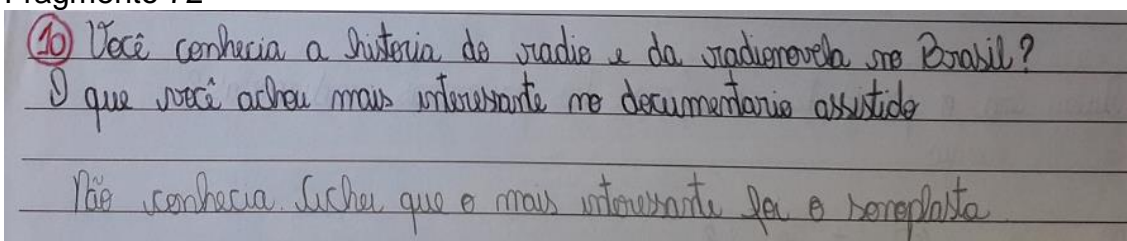 Fragmento 72
10) Você conhecia a historia do radio e da radionovela no Brasil?
O que você achou mais interessante no documentario assistido
Não conhecia. Achei que o mais interessante foi o sonoplasta.